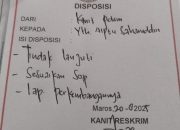 DISPOSISI
DARI : Kanit Pidum
KEPADA : Yth. Aipku Saharuddin
ISI DISPOSISI :
- Tindak lanjuti
- Sesuaikan Sop
- Lap. perkembangannya
Maros, 20-6-2025
KANIT RESKRIM